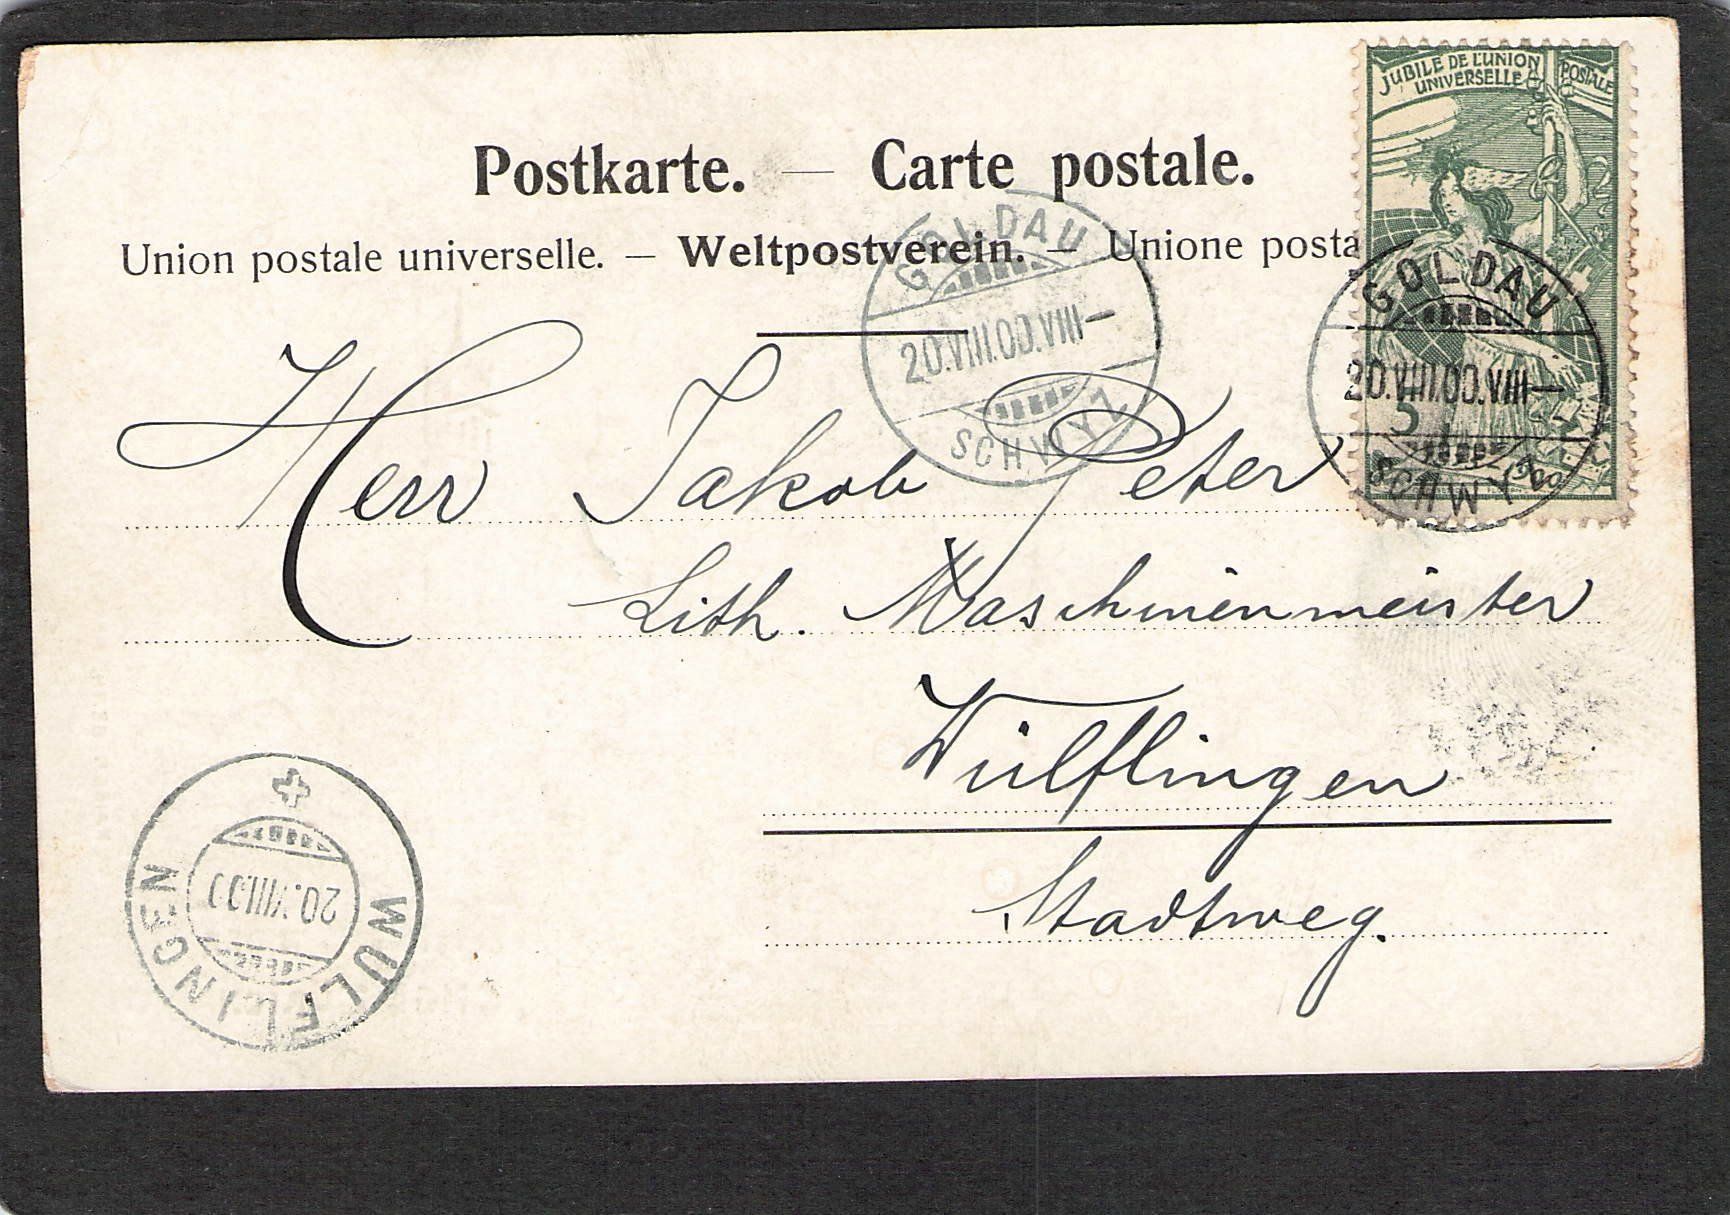 JUBILE DE L'UNION
POSTALE
UNIVERSELLE
Postkarte. — Carte postale.
Union postale universelle. — Weltpostverein. — Unione posta
GOLDAU
20.VIII.00.VIII—
SCHWYZ
GOLDAU
20.VIII.00.VIII—
5
SCHWYZ
Herr Jakob Peter
Lith. Maschinenmeister
Wülflingen
Stadtweg.
WÜLFLINGEN
20.VIII.00